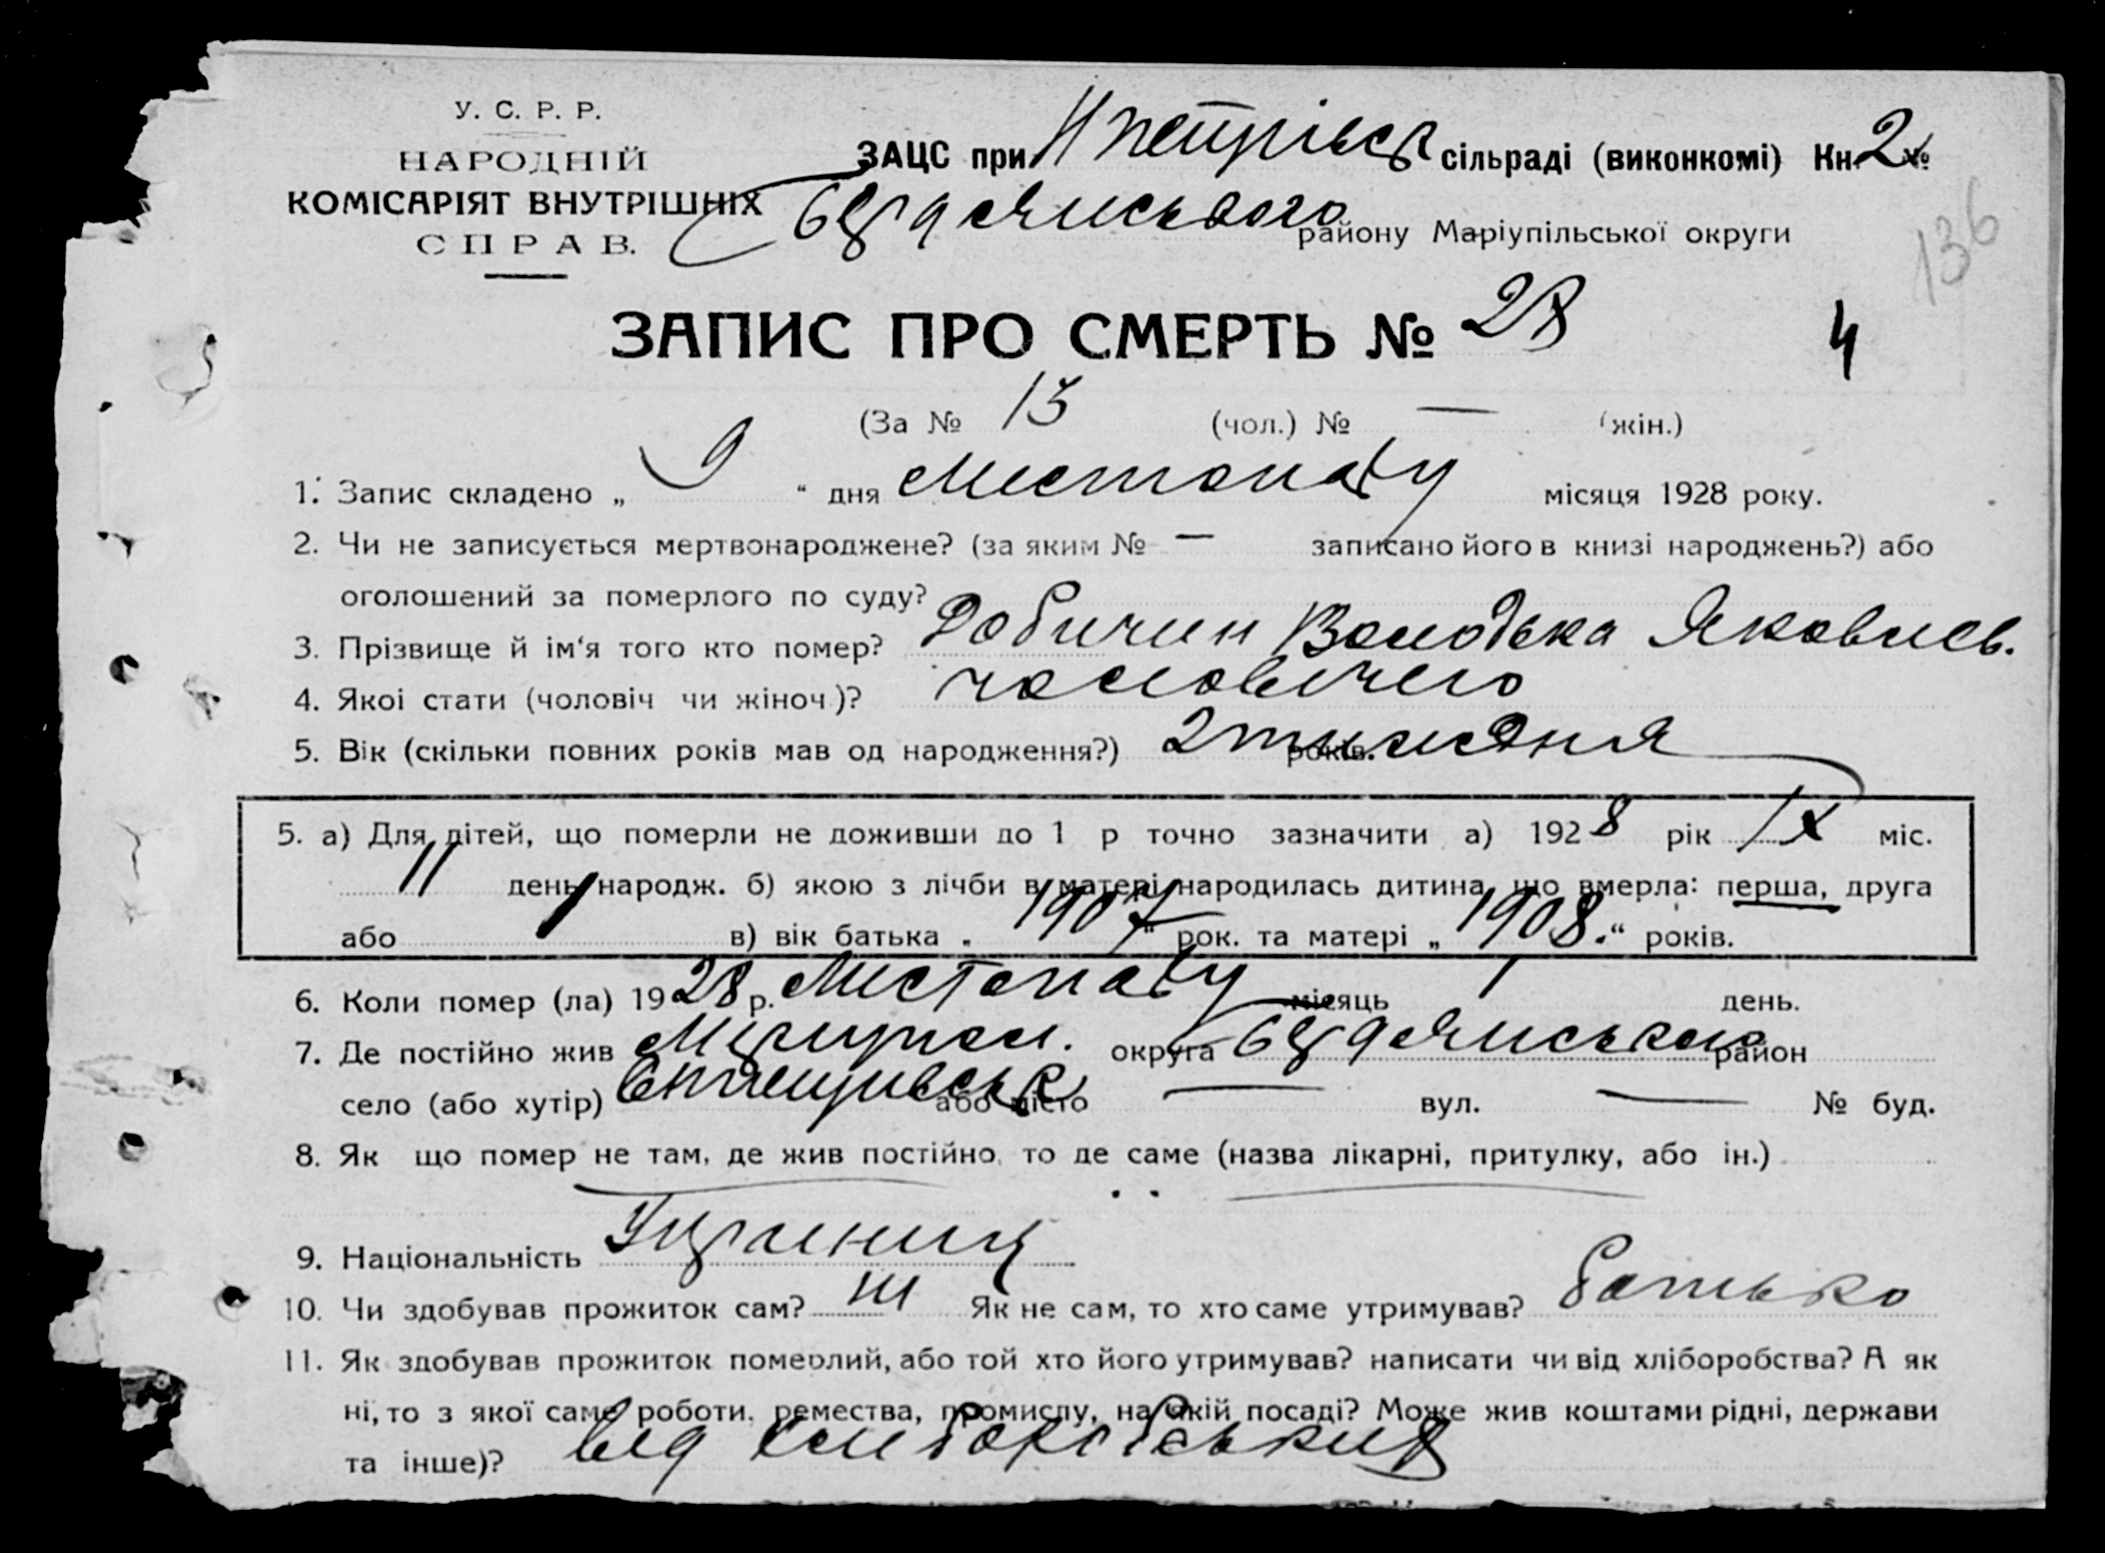 У. С. Р. Р.
НАРОДНІЙ
КОМІСАРІЯТ ВНУТРІШНІХ
СПРАВ.
ЗАЦС при Нпетрівськ сільраді (виконкомі) Кн 2 №
Бердянського району Маріупільської округи
136
ЗАПИС ПРО СМЕРТЬ № 28
4
(За № 13 (чол.) № — (жін.)
1. Запис складено „ 9 “ дня Листопаду місяця 1928 року.
2. Чи не записується мертвонароджене? (за яким № — записано його в книзі народжень?) або
оголошений за померлого по суду?
3. Прізвище й ім‘я того кто помер? Добичин Володька Яковлев.
4. Якоі стати (чоловіч чи жіноч)? чоловичего
5. Вік (скільки повних років мав од народження?) 2 тиждня років.
5. а) Для дітей, що померли не доживши до 1 р точно зазначити а) 1928 рік IX міс.
11 день народж. б) якою з лічби в матері народилась дитина, що вмерла: перша, друга
або в) вік батька „ 1907 “ рок. та матері „ 1908. “ років.
6. Коли помер (ла) 1928 р. Листопаду місяць 1 день.
7. Де постійно жив Маріупол. округа Бердянського район
село (або хутір) або місто — вул. — № буд.
8. Як що помер не там, де жив постійно, то де саме (назва лікарні, притулку, або ін.)
9. Національність Украинец
10. Чи здобував прожиток сам? ні Як не сам, то хто саме утримував? батько
11. Як здобував прожиток померлий, або той хто його утримував? написати чи від хліборобства? А як
ні, то з якої саме роботи, ремества, промислу, на якій посаді? Може жив коштами рідні, держави
та інше)? від